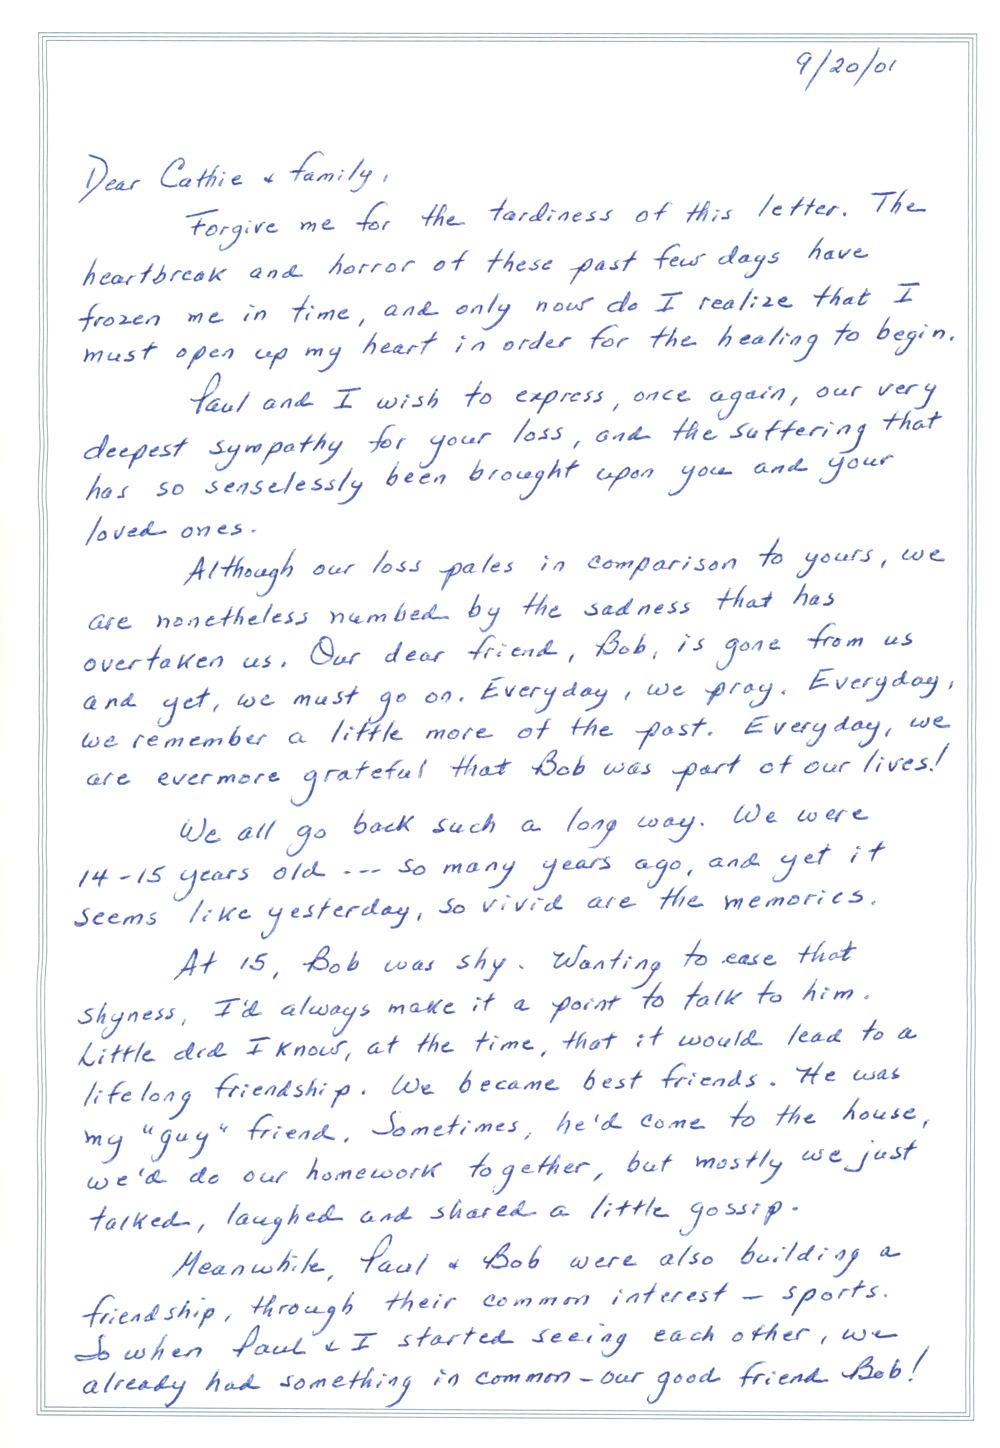 9/20/01
Dear Cathie & family,
Forgive me for the tardiness of this letter. The
heartbreak and horror of these past few days have
frozen me in time, and only now do I realize that I
must open up my heart in order for the healing to begin.
Paul and I wish to express, once again, our very
deepest sympathy for your loss, and the suffering that
has so senselessly been brought upon you and your
loved ones.
Although our loss pales in comparison to yours, we
are nonetheless numbed by the sadness that has
overtaken us. Our dear friend, Bob, is gone from us
and yet, we must go on. Everyday, we pray. Everyday,
we remember a little more of the past. Everyday, we
are evermore grateful that Bob was part of our lives!
We all go back such a long way. We were
14-15 years old --- so many years ago, and yet it
seems like yesterday, so vivid are the memories.
At 15, Bob was shy. Wanting to ease that
shyness, I'd always make it a point to talk to him.
Little did I know, at the time, that it would lead to a
lifelong friendship. We became best friends. He was
my "guy" friend. Sometimes, he'd come to the house,
we'd do our homework together, but mostly we just
talked, laughed and shared a little gossip.
Meanwhile, Paul & Bob were also building a
friendship, through their common interest - sports.
So when Paul & I started seeing each other, we
already had something in common - our good friend Bob!